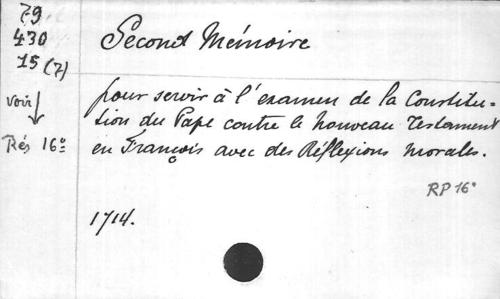 79
430
15 (7)
voir
Rés 16º
Second Mémoire
pour servir à l'examen de la Constitu=
tion du Pape contre le nouveau Testament
en François avec des Réflexions morales.
RP 16º
1714.